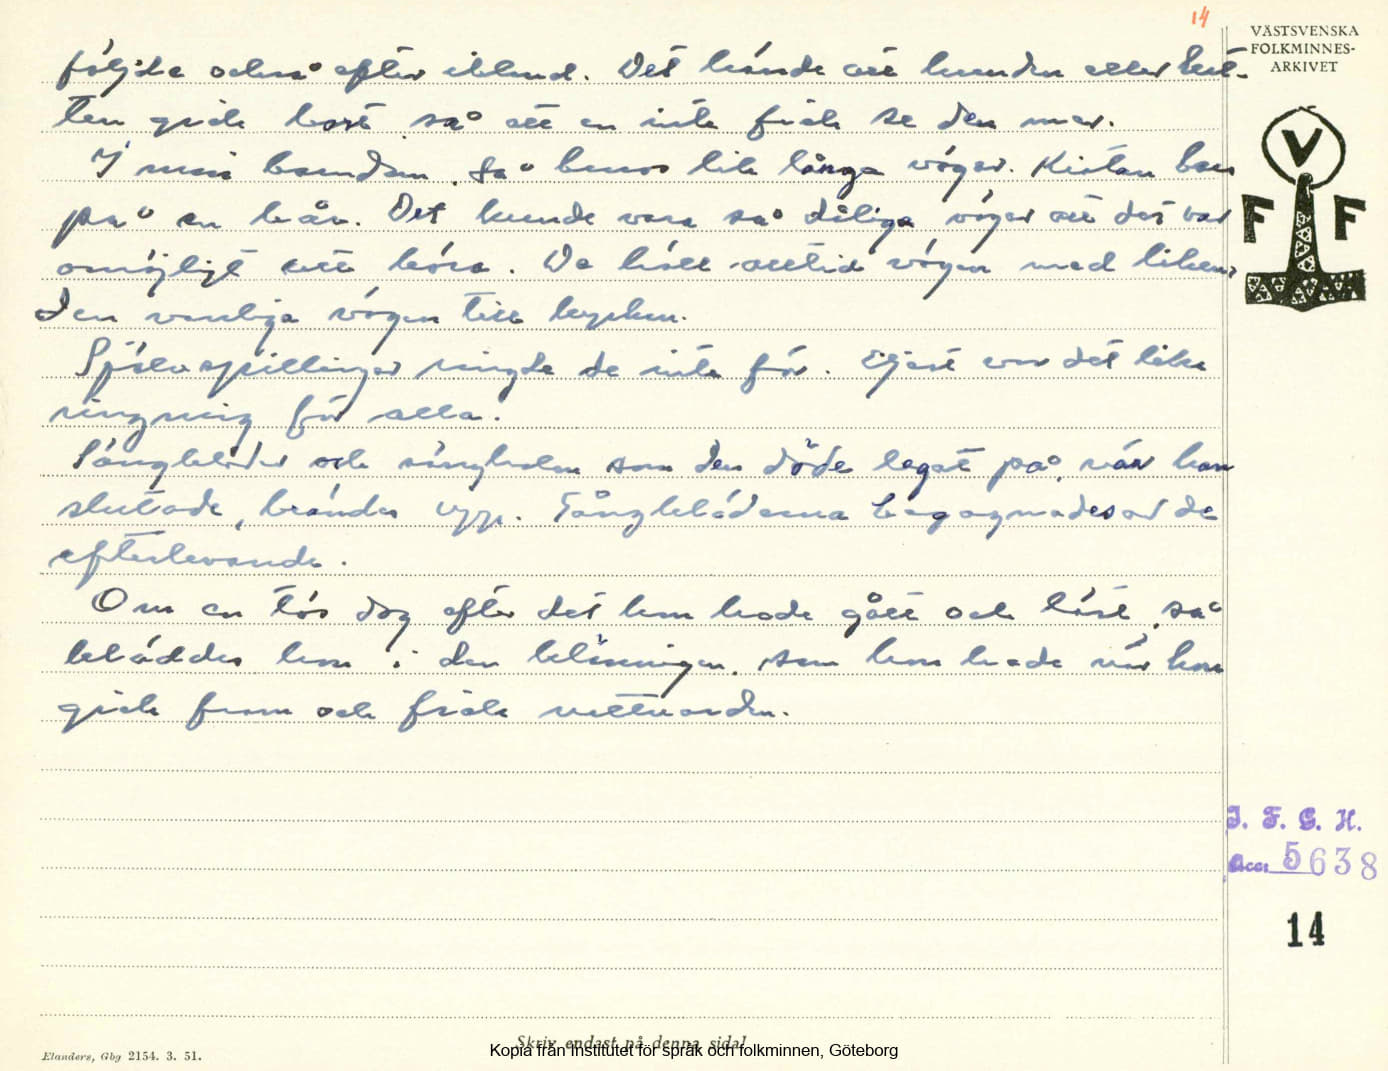 14
VÄSTSVENSKA
FOLKMINNES-
ARKIVET
följde också efter ibland. Det hände att hunden eller kat-
ten gick bort så att en inte fick se den mer.
I min barndom så buros lik långa vägar. Kistan bars
på en bår. Det kunde vara så dåliga vägar att det var
omöjligt att köra. De höll alltid vägen med liken,
den vanliga vägen till kyrkan.
Självspillingar ringde de inte för. Eljest var det lika
ringning för alla.
Sängkläder och sänghalm som den döde legat på, när han
slutade, brändes upp. Gångkläderna begagnades av de
efterlevande.
Om en tös dog efter det hon hade gått och läst, så
bekläddes hon i den klänningen, som hon hade när hon
gick fram och fick nattvarden.
V
F F
I. F. G. H.
Acc. 5638
14
Skriv endast på denna sida!
Elanders, Gbg 2154. 3. 51.
Kopia från Institutet för språk och folkminnen, Göteborg